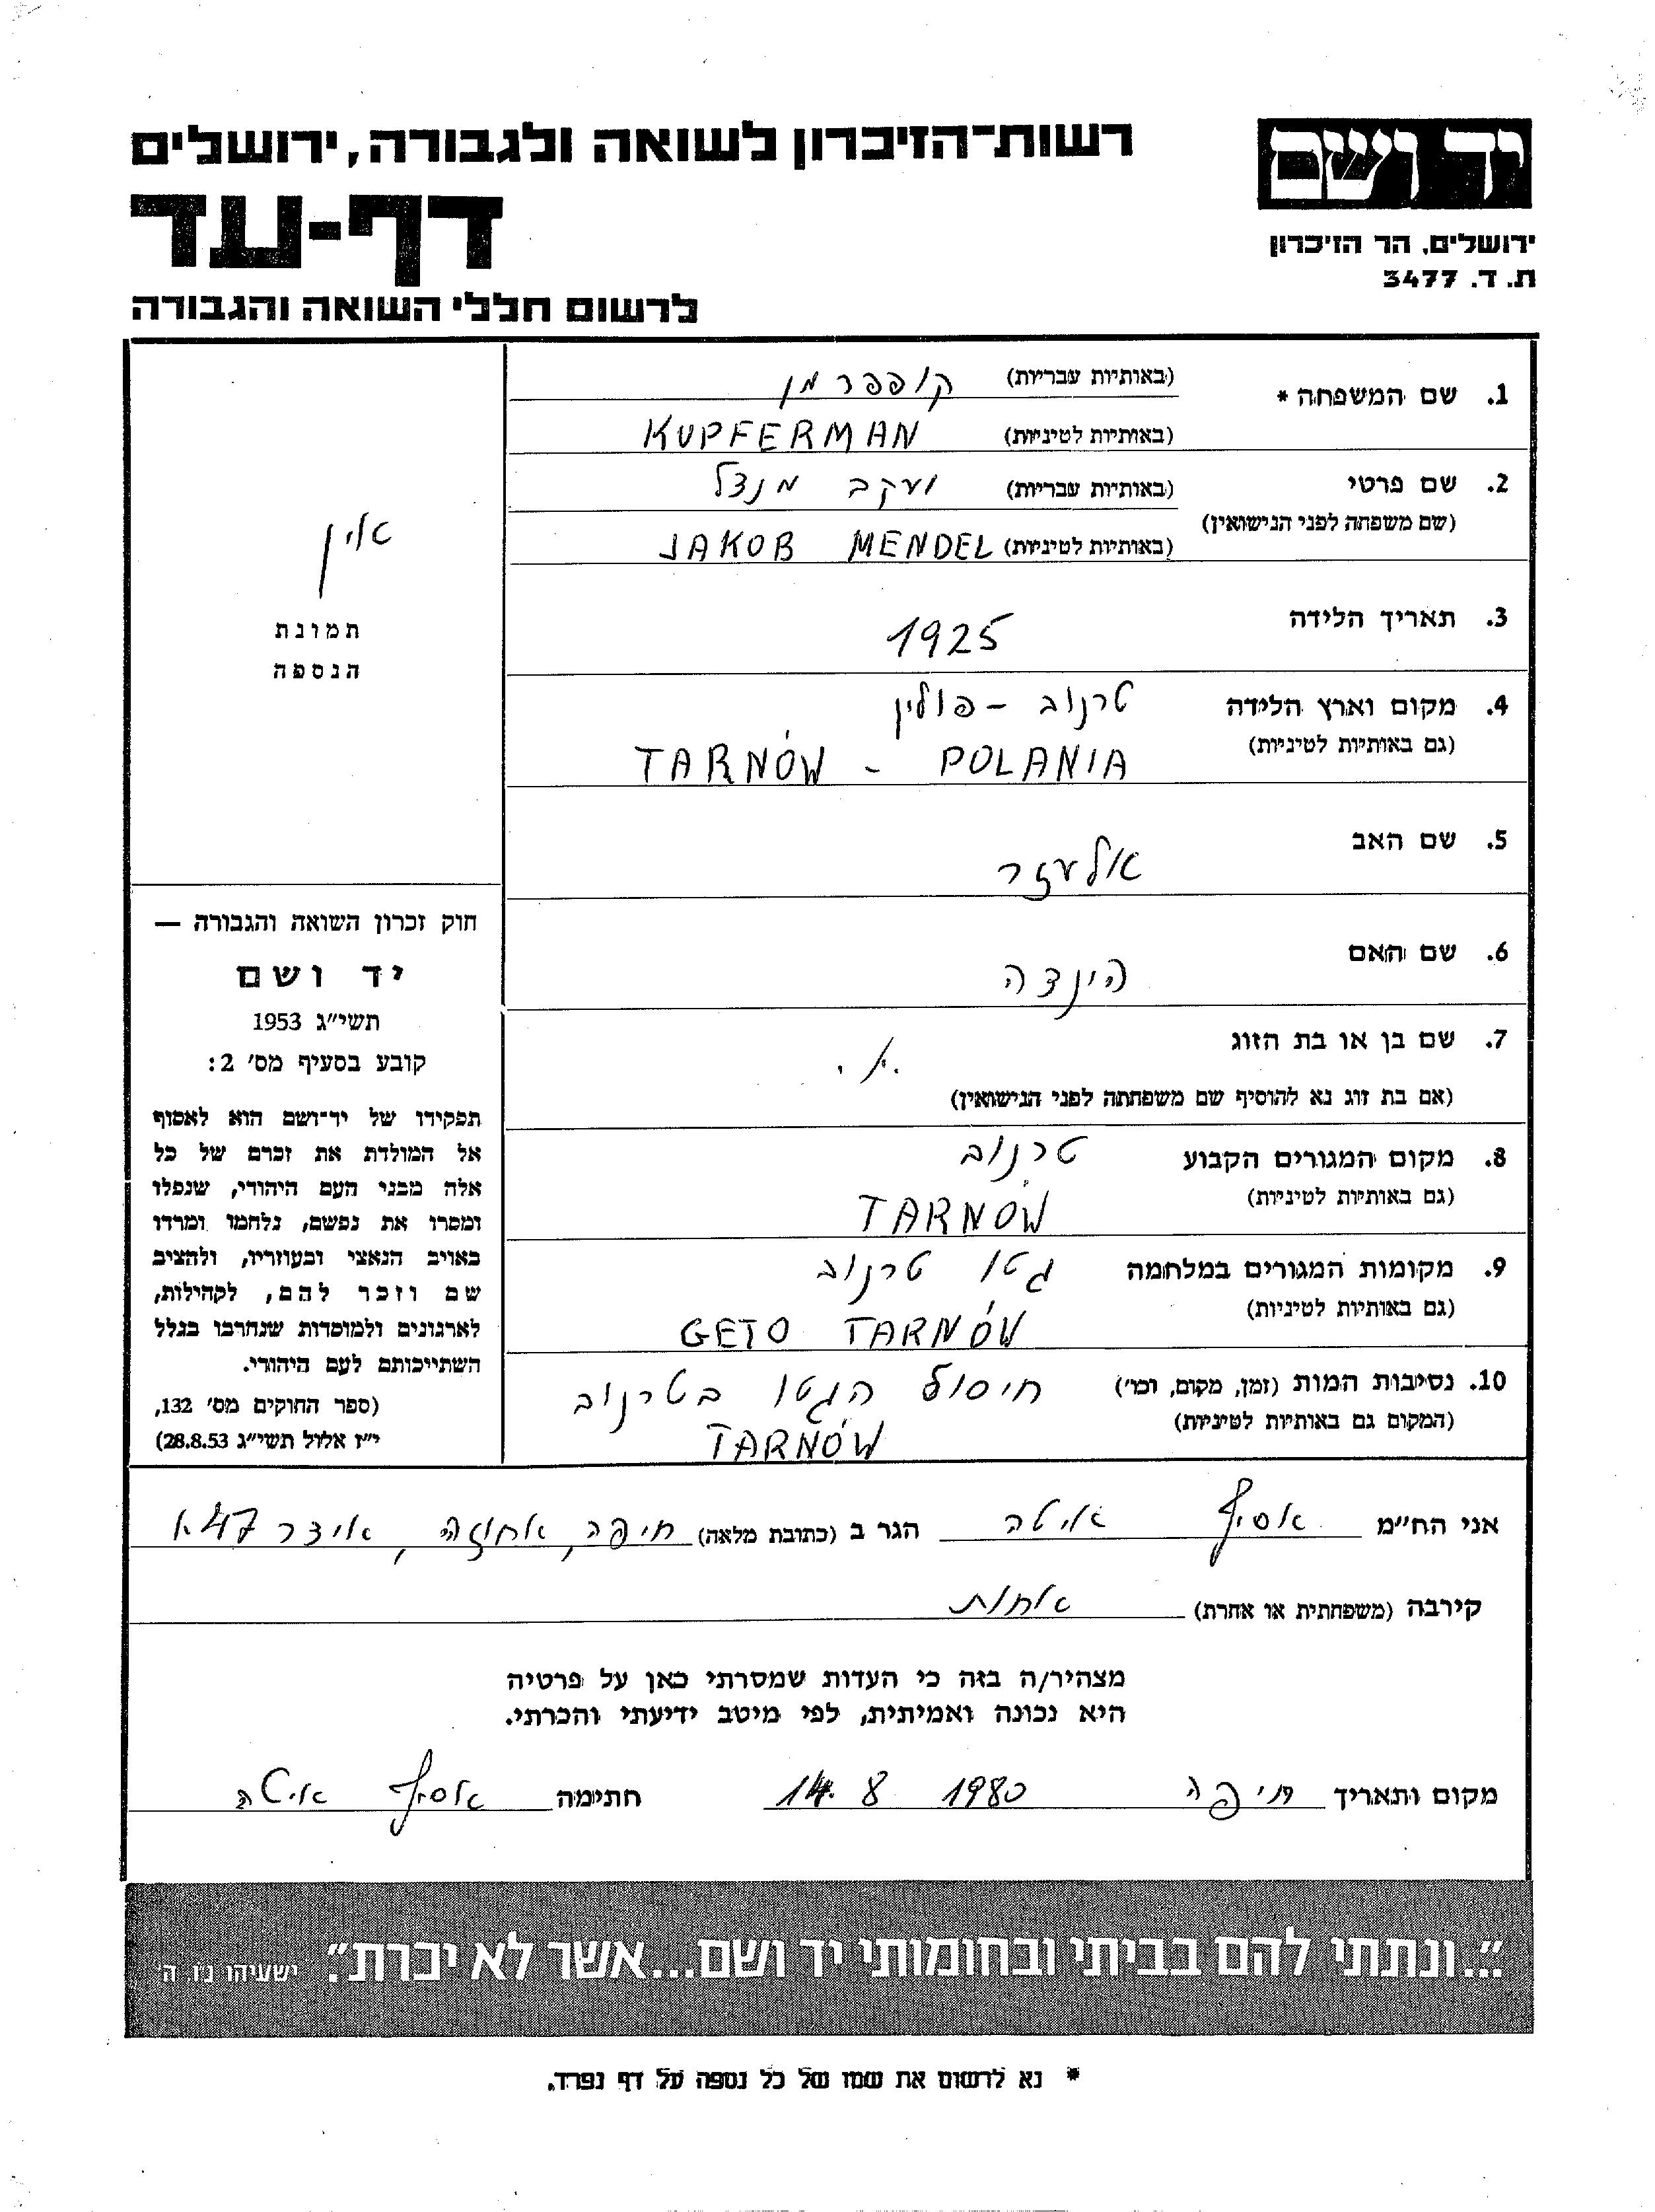 יד ושם
ירושלים, הר הזיכרון
ת. ד. 3477
רשות-הזיכרון לשואה ולגבורה, ירושלים
דף-עד
לרשום חללי השואה והגבורה
1. שם המשפחה * (באותיות עבריות) קופפרמן
(באותיות לטיניות) KUPFERMAN
2. שם פרטי (באותיות עבריות) יעקב מנדל
(שם משפחה לפני הנישואין)
(באותיות לטיניות) JAKOB MENDEL
3. תאריך הלידה 1925
4. מקום וארץ הלידה טרנוב - פולין
(גם באותיות לטיניות) TARNÓW - POLANIA
5. שם האב אלעזר
6. שם האם הינדה
7. שם בן או בת הזוג
(אם בת זוג נא להוסיף שם משפחתה לפני הנישואין)
8. מקום המגורים הקבוע טרנוב
(גם באותיות לטיניות) TARNÓW
9. מקומות המגורים במלחמה גטו טרנוב
(גם באותיות לטיניות) GETO TARNÓW
10. נסיבות המות (זמן, מקום, וכו') חיסול הגטו בטרנוב
(המקום גם באותיות לטיניות) TARNÓW
אין
תמונת
הנספה
חוק זכרון השואה והגבורה —
יד ושם
תשי"ג 1953
קובע בסעיף מס' 2:
תפקידו של יד-ושם הוא לאסוף
אל המולדת את זכרם של כל
אלה מבני העם היהודי, שנפלו
ומסרו את נפשם, נלחמו ומרדו
באויב הנאצי ובעוזריו, ולהציב
שם וזכר להם, לקהילות,
לארגונים ולמוסדות שנחרבו בגלל
השתייכותם לעם היהודי.
(ספר החוקים מס' 132,
י"ז אלול תשי"ג 28.8.53)
אני הח"מ אסיף איטה הגר ב (כתובת מלאה) חיפה, אחוזה, אידר 47א
קירבה (משפחתית או אחרת) אחות
מצהיר/ה בזה כי העדות שמסרתי כאן על פרטיה
היא נכונה ואמיתית, לפי מיטב ידיעתי והכרתי.
מקום ותאריך חיפה 14. 8 1980 חתימה אסיף איטה
"...ונתתי להם בביתי ובחומותי יד ושם...אשר לא יכרת". ישעיהו נו, ה'
* נא לרשום את שמו של כל נספה על דף נפרד.